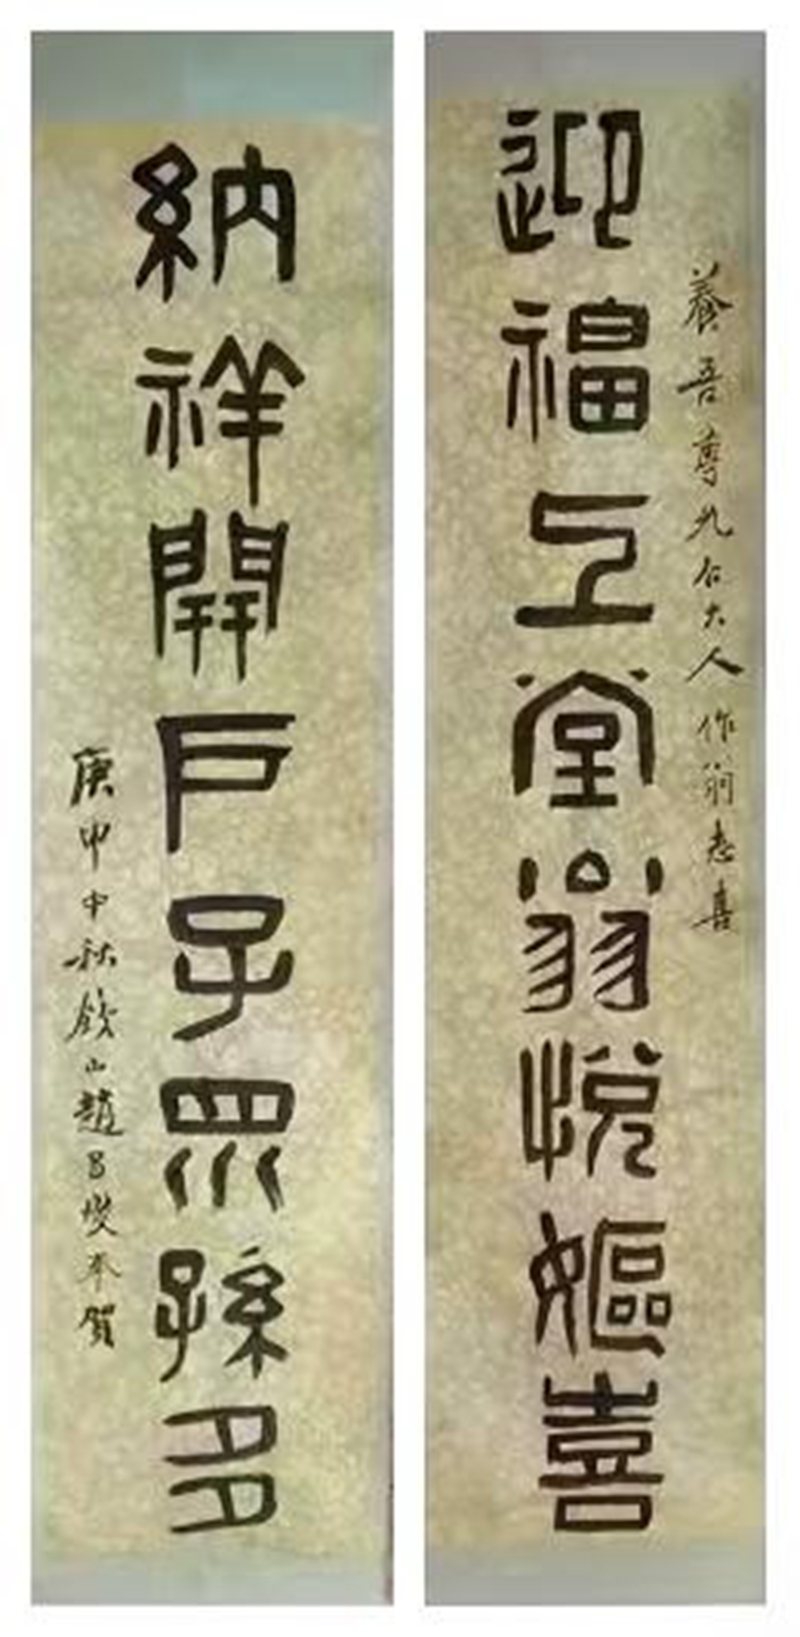 養吾尊大人作翁志喜
迎福上堂翁悅嫗喜
納祥開戶子眾孫多
庚申中秋銕山趙昌燮奉賀